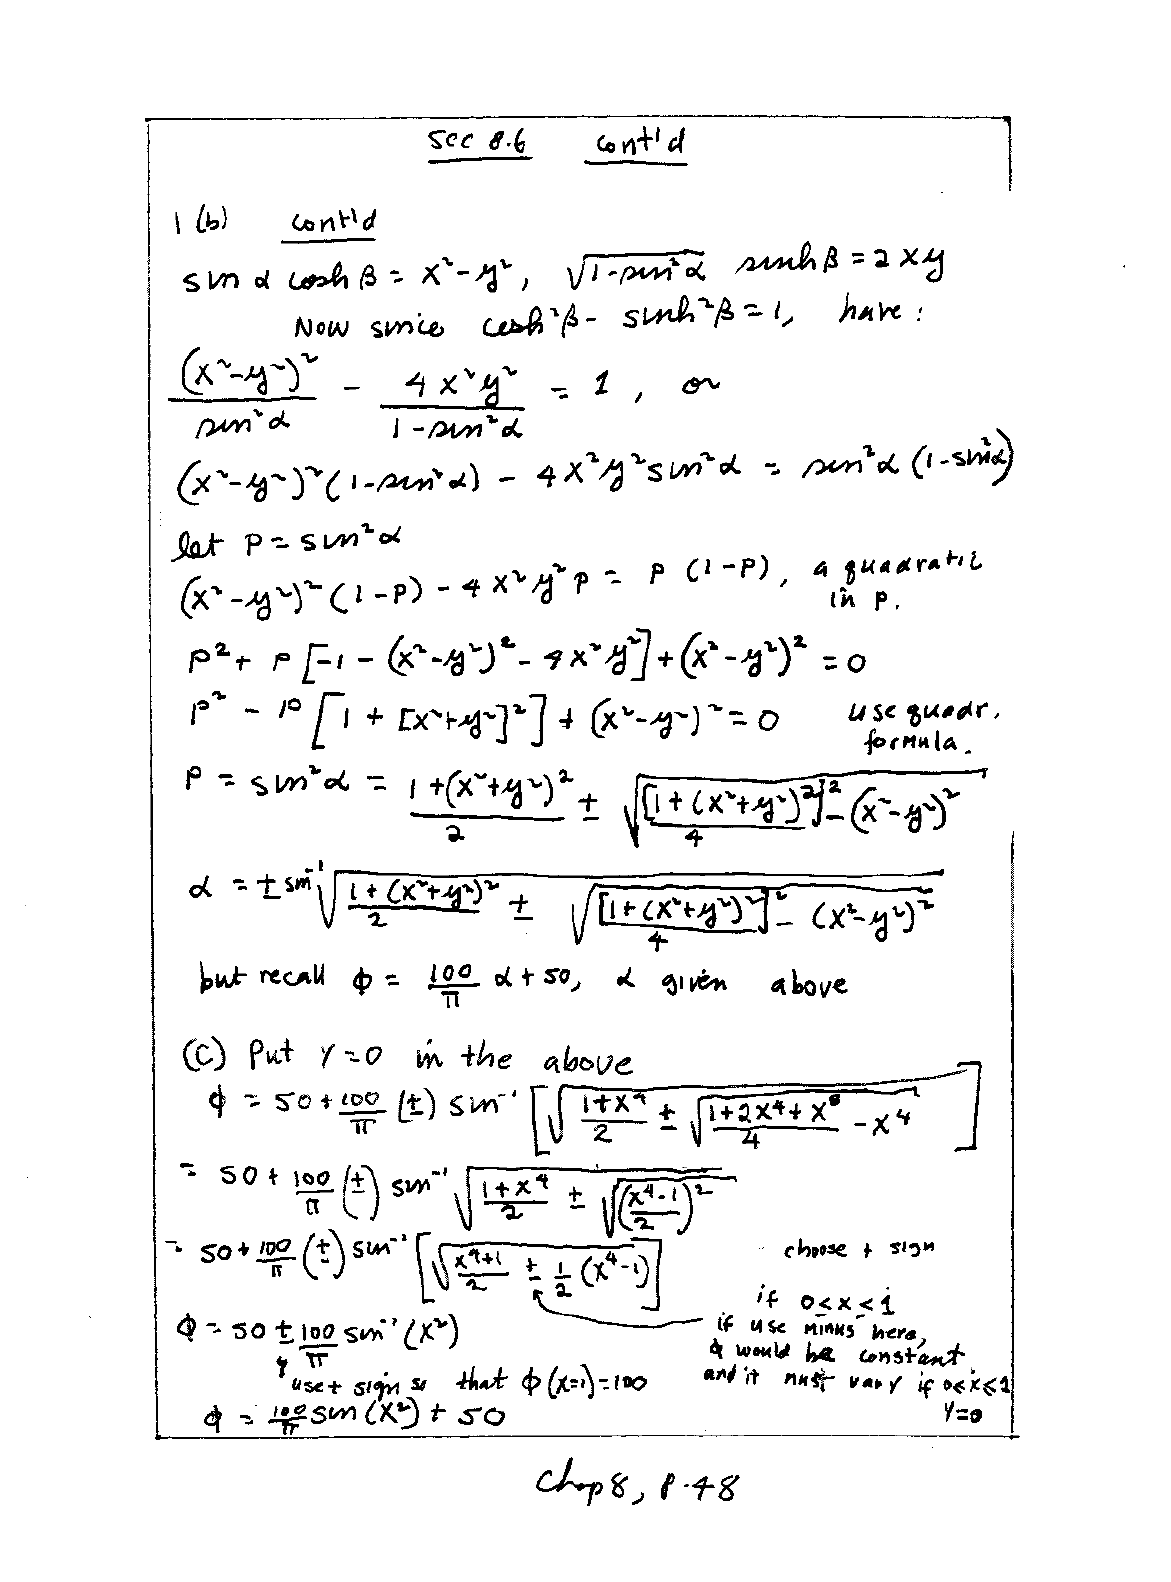 Sec 8.6 cont'd
1 (b) cont'd
sin α cosh β = x²-y², √(1-sin²α) sinh β = 2xy
Now since cosh²β - sinh²β = 1, have:
(x²-y²)²/sin²α - 4x²y²/(1-sin²α) = 1, or
(x²-y²)²(1-sin²α) - 4x²y² sin²α = sin²α (1-sin²α)
let P = sin²α
(x²-y²)²(1-P) - 4x²y²P = P(1-P), a quadratic
in P.
P² + P[-1-(x²-y²)²-4x²y²]+(x²-y²)² = 0
P² - P[1+[x²+y²]²]+(x²-y²)² = 0 use quadr.
formula.
P = sin²α = (1+(x²+y²)²)/2 ± √([1+(x²+y²)²]²/4 - (x²-y²)²)
α = ± sin⁻¹ √((1+(x²+y²)²)/2 ± √([1+(x²+y²)²]²/4 - (x²-y²)²))
but recall φ = 100/π α + 50, α given above
(C) Put Y=0 in the above
φ = 50 + 100/π (±) sin⁻¹ [√((1+x⁴)/2 ± √((1+2x⁴+x⁸)/4 - x⁴))]
= 50 + 100/π (±) sin⁻¹ √((1+x⁴)/2 ± √(((x⁴-1)/2)²))
= 50 + 100/π (±) sin⁻¹ [√((x⁴+1)/2 ± 1/2 (x⁴-1))] choose + sign
if 0≤x≤1
φ = 50 ± 100/π sin⁻¹(x²) if use minus here,
φ would be constant
use + sign so that φ(x=1)=100 and it must vary if 0≤x≤1
φ = 100/π sin(x²) + 50 Y=0
Chap 8, p.48